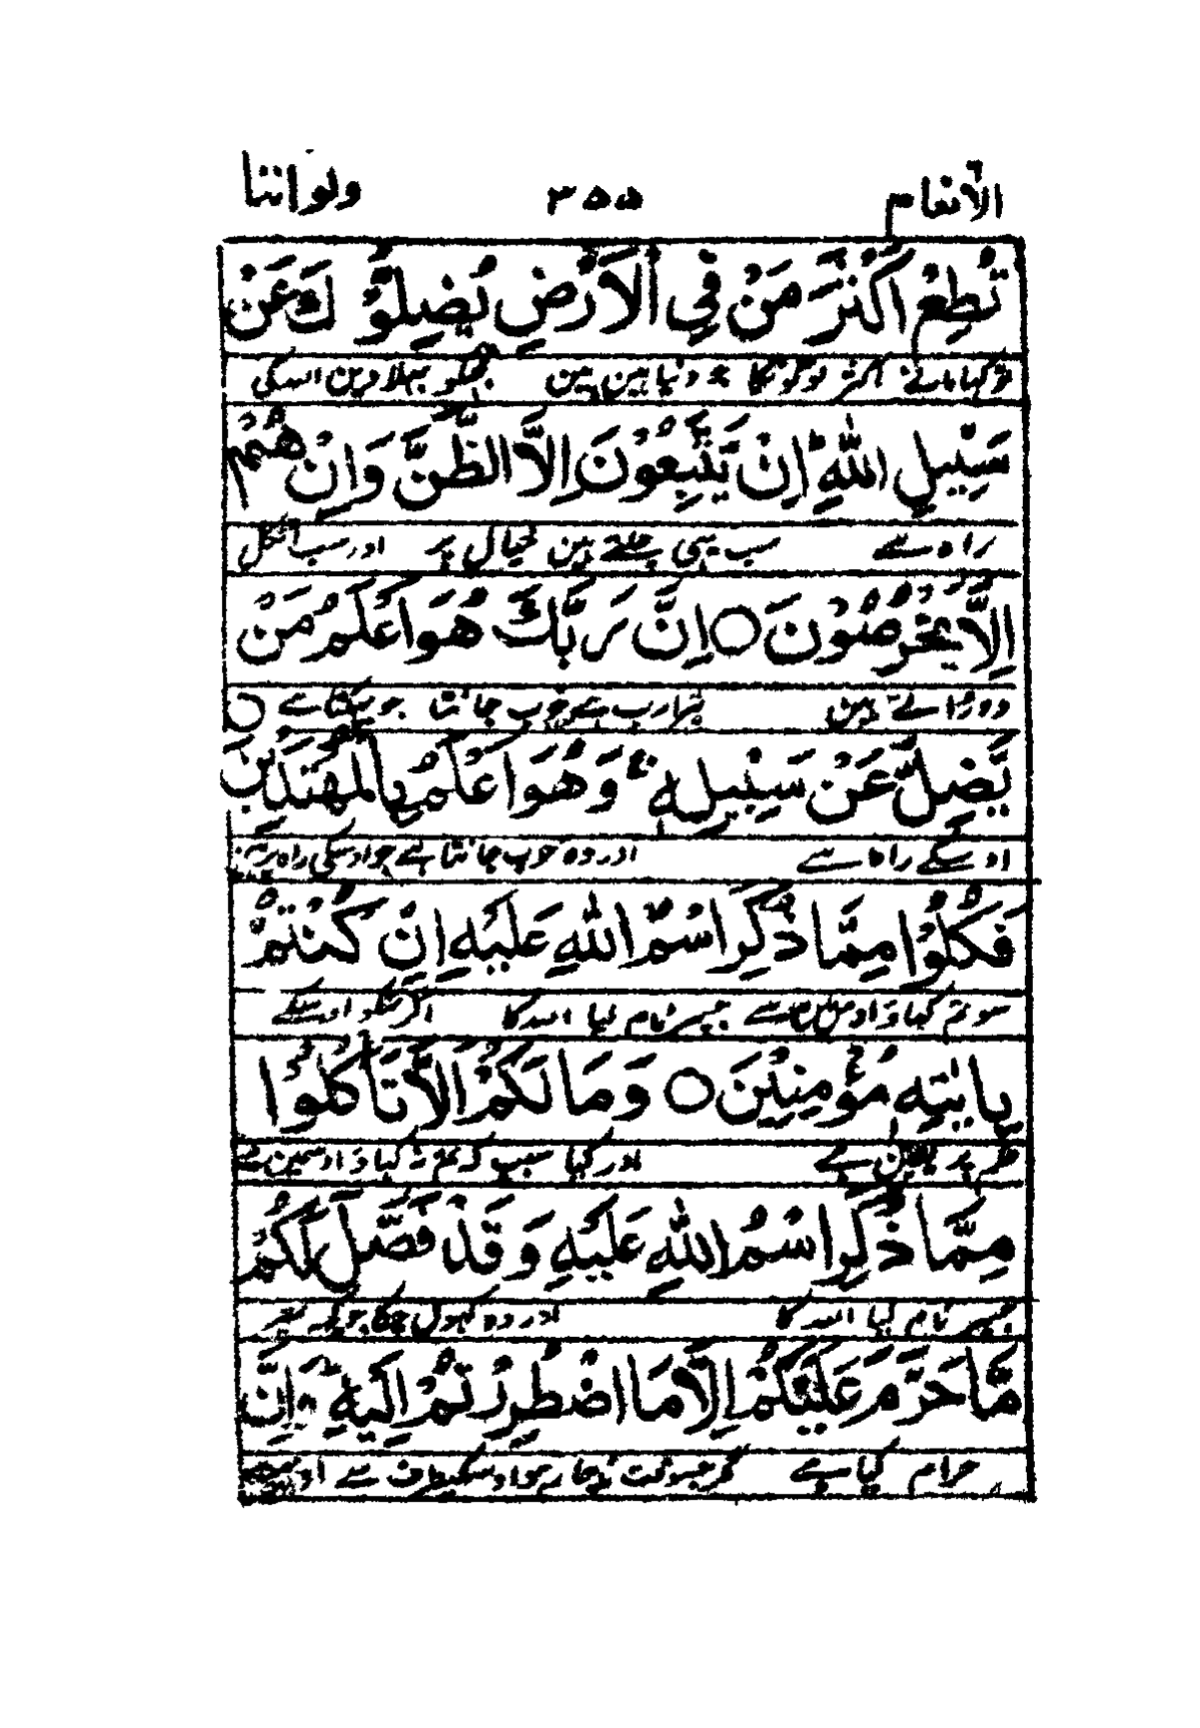 الانعام ٣٥٥ ولواننا
تُطِعْ اَكْثَرَ مَنْ فِي الْاَرْضِ يُضِلُّوْكَ عَنْ
تو کہا مانے اکثر لوگونکا جو دنیا مین ہین تجھکو بہلا دین اللہ کی
سَبِيْلِ اللّٰهِ ؕ اِنْ يَّتَّبِعُوْنَ اِلَّا الظَّنَّ وَاِنْ هُمْ
راہ سے سب یہی چلتے ہین خیال پر اور سب اٹکل
اِلَّا يَخْرُصُوْنَ ○ اِنَّ رَبَّكَ هُوَ اَعْلَمُ مَنْ
دوڑاتے ہین تیرا رب ہے خوب جانتا جو بہکتا ہے
يَّضِلُّ عَنْ سَبِيْلِهٖ ۚ وَهُوَ اَعْلَمُ بِالْمُهْتَدِيْنَ ○
اوسکے راہ سے اور وہ خوب جانتا ہے جو اوسکی راہ پر
فَكُلُوْا مِمَّا ذُكِرَ اسْمُ اللّٰهِ عَلَيْهِ اِنْ كُنْتُمْ
سو تم کہاؤ اوسمین سے جسپر نام لیا اللہ کا اگر تمکو اوسکے
بِاٰيٰتِهٖ مُؤْمِنِيْنَ ○ وَمَا لَكُمْ اَلَّا تَاْكُلُوْا
حکم پر یقین ہے اور کیا سبب کہ تم نہ کہاؤ اوسمین سے
مِمَّا ذُكِرَ اسْمُ اللّٰهِ عَلَيْهِ وَقَدْ فَصَّلَ لَكُمْ
جسپر نام لیا اللہ کا اور وہ کہول چکا جو کچہ
مَّا حَرَّمَ عَلَيْكُمْ اِلَّا مَا اضْطُرِرْتُمْ اِلَيْهِ ؕ وَاِنَّ
حرام کیا ہے مگر جسوقت ناچار ہو اوسکیطرف سے اور